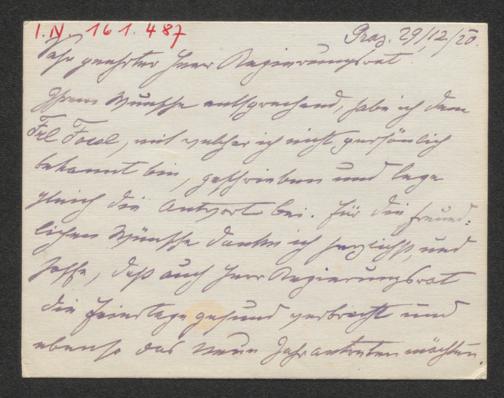 I.N. 161.487
Graz, 29/12/20.
Sehr geehrter Herr Regierungsrat
Ihrem Wunsche entsprechend, habe ich dem
Frl. , mit welcher ich nicht persönlich
bekannt bin, geschrieben und lege
gleich die Antwort bei. Für die freund-
lichen Wünsche danke ich herzlichst, und
hoffe, daß auch Herr Regierungsrat
die Feiertage gesund verbracht und
ebenso das neue Jahr antreten möchten.